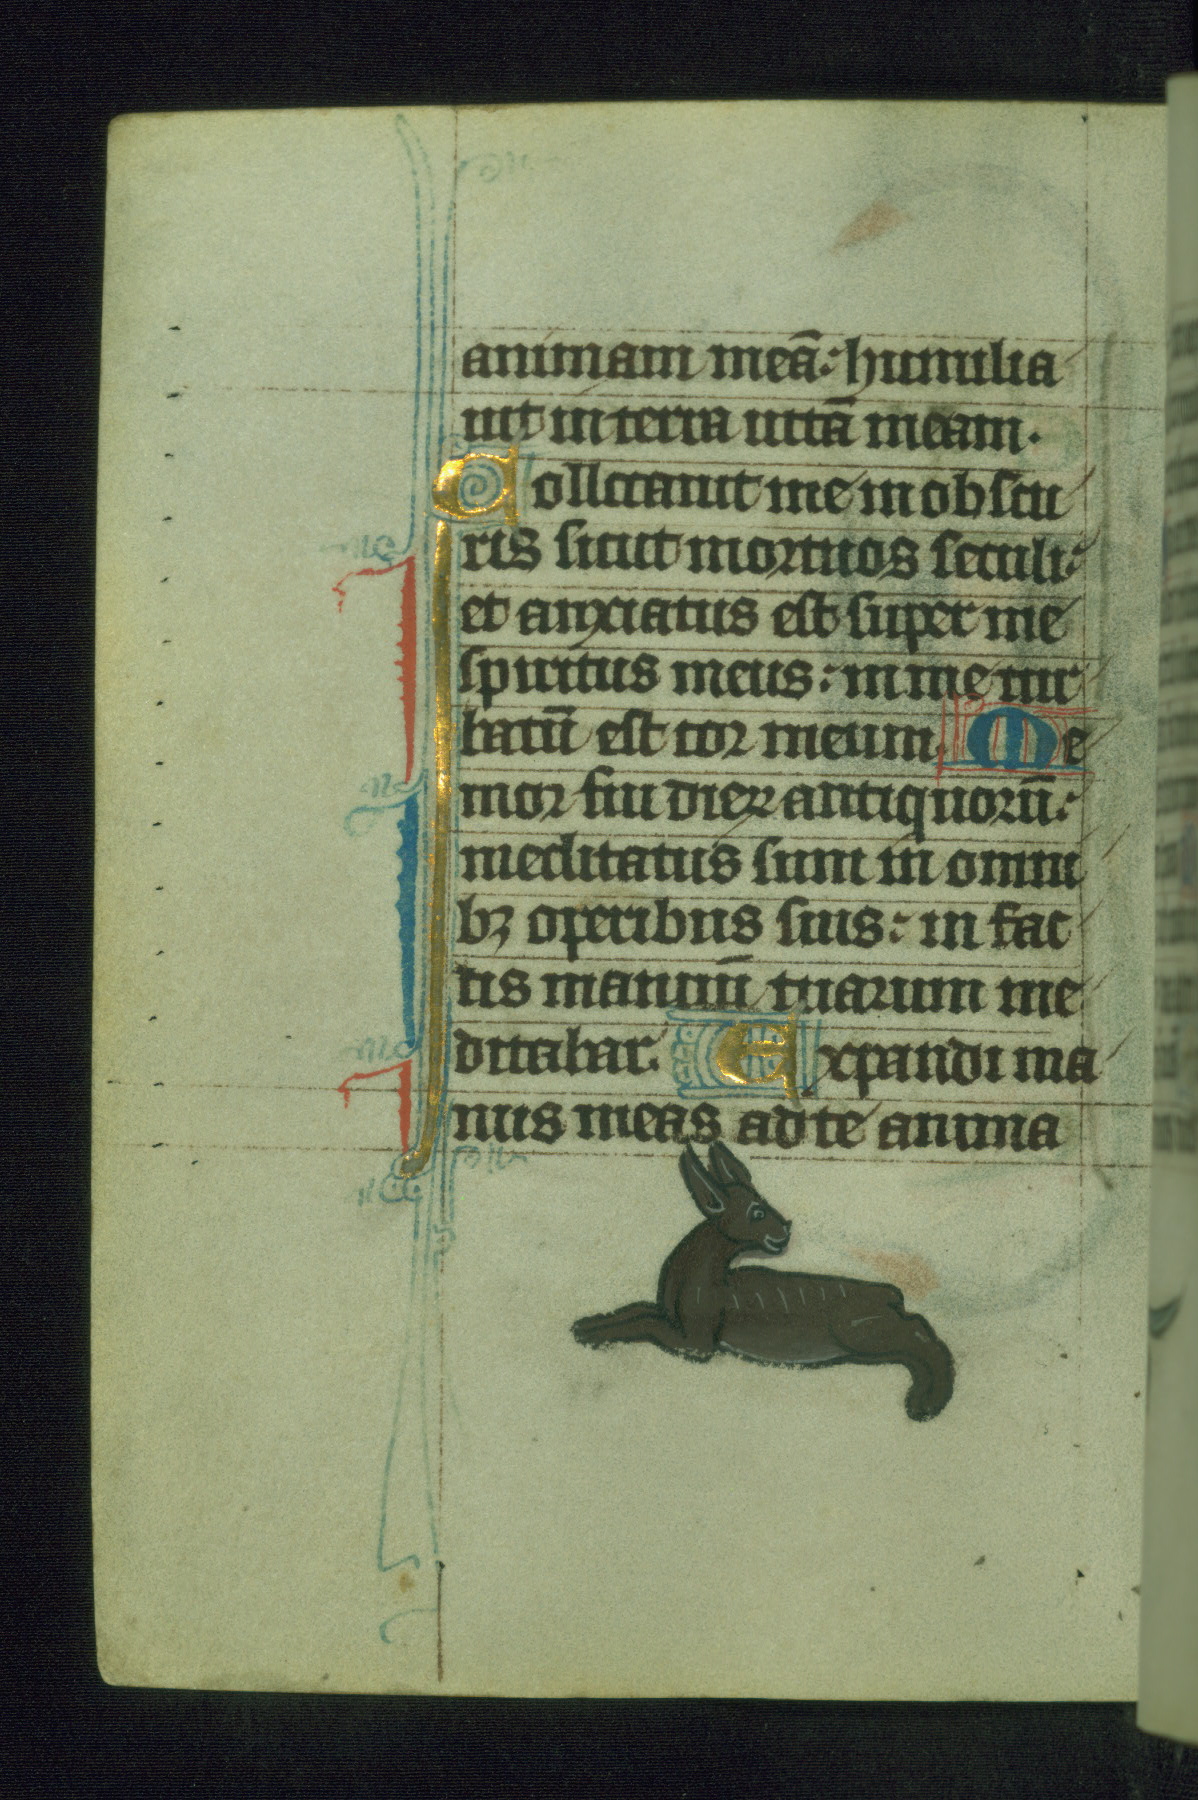 animam meā: humilia
uit in terra uitā meam.
Collocauit me in obscu
ris sicut mortuos seculi:
et anxiatus est super me
spiritus meus: in me tur
batū est cor meum. Me
mor fui dierꝝ antiquorū:
meditatus sum in omni
bꝫ operibus tuis: in fac
tis manuū tuarum me
ditabar. Expandi ma
nus meas ad te anima